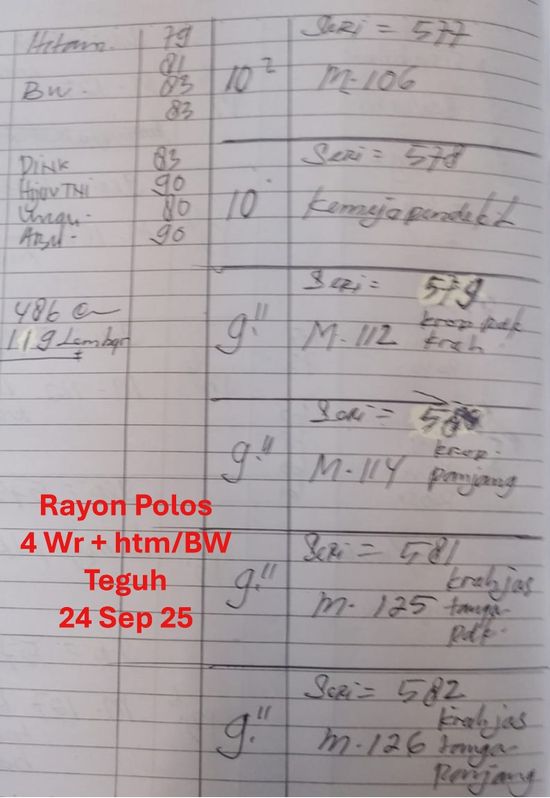 Hitam. 79
81
BW. 83
83
DINK 83
HijauTNI 90
Ungu. 80
Abu. 90
486 Cm
119 Lembar
10 Seri = 577
M-106
10 Seri = 578
Kemeja pendek L
9." Seri = 579
krop pdk
M-112 krah
9." Seri =
krop.
M-114 panjang
9." Seri = 581
krah jas
M-125 tanga
pdk.
9." Seri = 582
krah jas
M-126 tanga
Panjang
Rayon Polos
4 Wr + htm/BW
Teguh
24 Sep 25